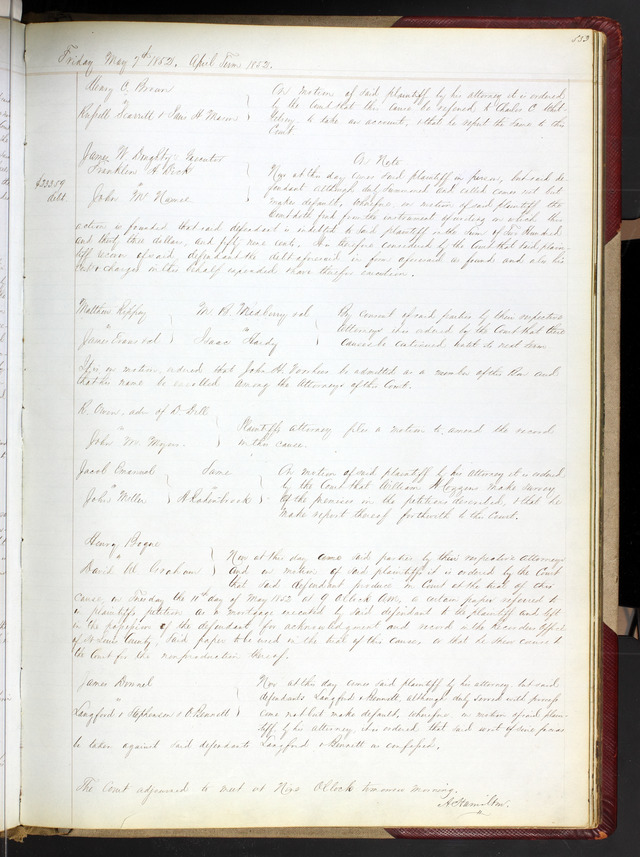 533
Friday May 7th 1852. April Term 1852.
Mary C. Brown
"
Russell Scarritt & Jane H. Mason
On motion of said plaintiff by his attorney it is ordered
by the Court that the cause be referred to Charles C.
to take an account, & that he report the same to this
Court
James W. Doughty Executor
Franklin A Dick
"
John Mc Namee
$233.59
debt.
On Note
Now at this day comes said plaintiff in person, but said de
fendant although duly summoned and called comes not but
makes default, wherefore, on motion of said plaintiff, the
Court doth find from the instrument of writing on which this
action is founded that said defendant is indebted to said plaintiff in the sum of Two Hundred
and thirty three dollars, and fifty nine cents. It is therefore considered by the Court that said plain
tiff recover of said, defendant, the debt aforesaid in form aforesaid as found and also his
costs & charges in this behalf expended & have therefor execution.
Matthew Rippey
"
James Evans et al
Wm R. Bradberry et al
"
Isaac Hardy
By consent of said parties by their respective
Attorneys it is ordered by the Court that these
causes be continued until the next term
It is on motion, ordered that John H. Voorhies be admitted as a member of the Bar and
that his name be enrolled among the Attorneys of this Court.
R. Owen, adm of D. Bell
"
John W. Moyers
Plaintiffs attorney files a motion to amend the record
in this cause.
Jacob Emanuel
"
John Miller
Same
"
On motion of said plaintiff by his attorney it is ordered
by the Court that William H. Cozzens make survey
of the premises in the petition described, & that he
make report thereof forthwith to this Court.
Henry Bogue
"
David M.
Now at this day come said parties by their respective attorneys
And on motion of said plaintiff it is ordered by the Court
that said defendant produce in Court at the trial of this
cause, on Tuesday the 11th day of May 1852 at 9 O'Clock AM, a certain paper referred to
in plaintiffs petition as a mortgage executed by said defendant to the plaintiff and left
in the possession of the defendant for acknowledgment and record in the Recorders Office
of St Louis County, said paper to be used in the trial of this cause, or that he show cause to
the Court for the nonproduction thereof.
James Bonnel
"
Langford & Stephenson & O. Bennett
Now at this day comes said plaintiff by his attorney but said
defendants Langford & Bennett, although duly served with process
come not but make default, wherefore, on motion of said plain
tiff, by his attorney, it is ordered, that said writ of
be taken against said defendants Langford & Bennett as confessed.
The Court adjourned to meet at Nine O'Clock tomorrow morning.
A. Hamilton.